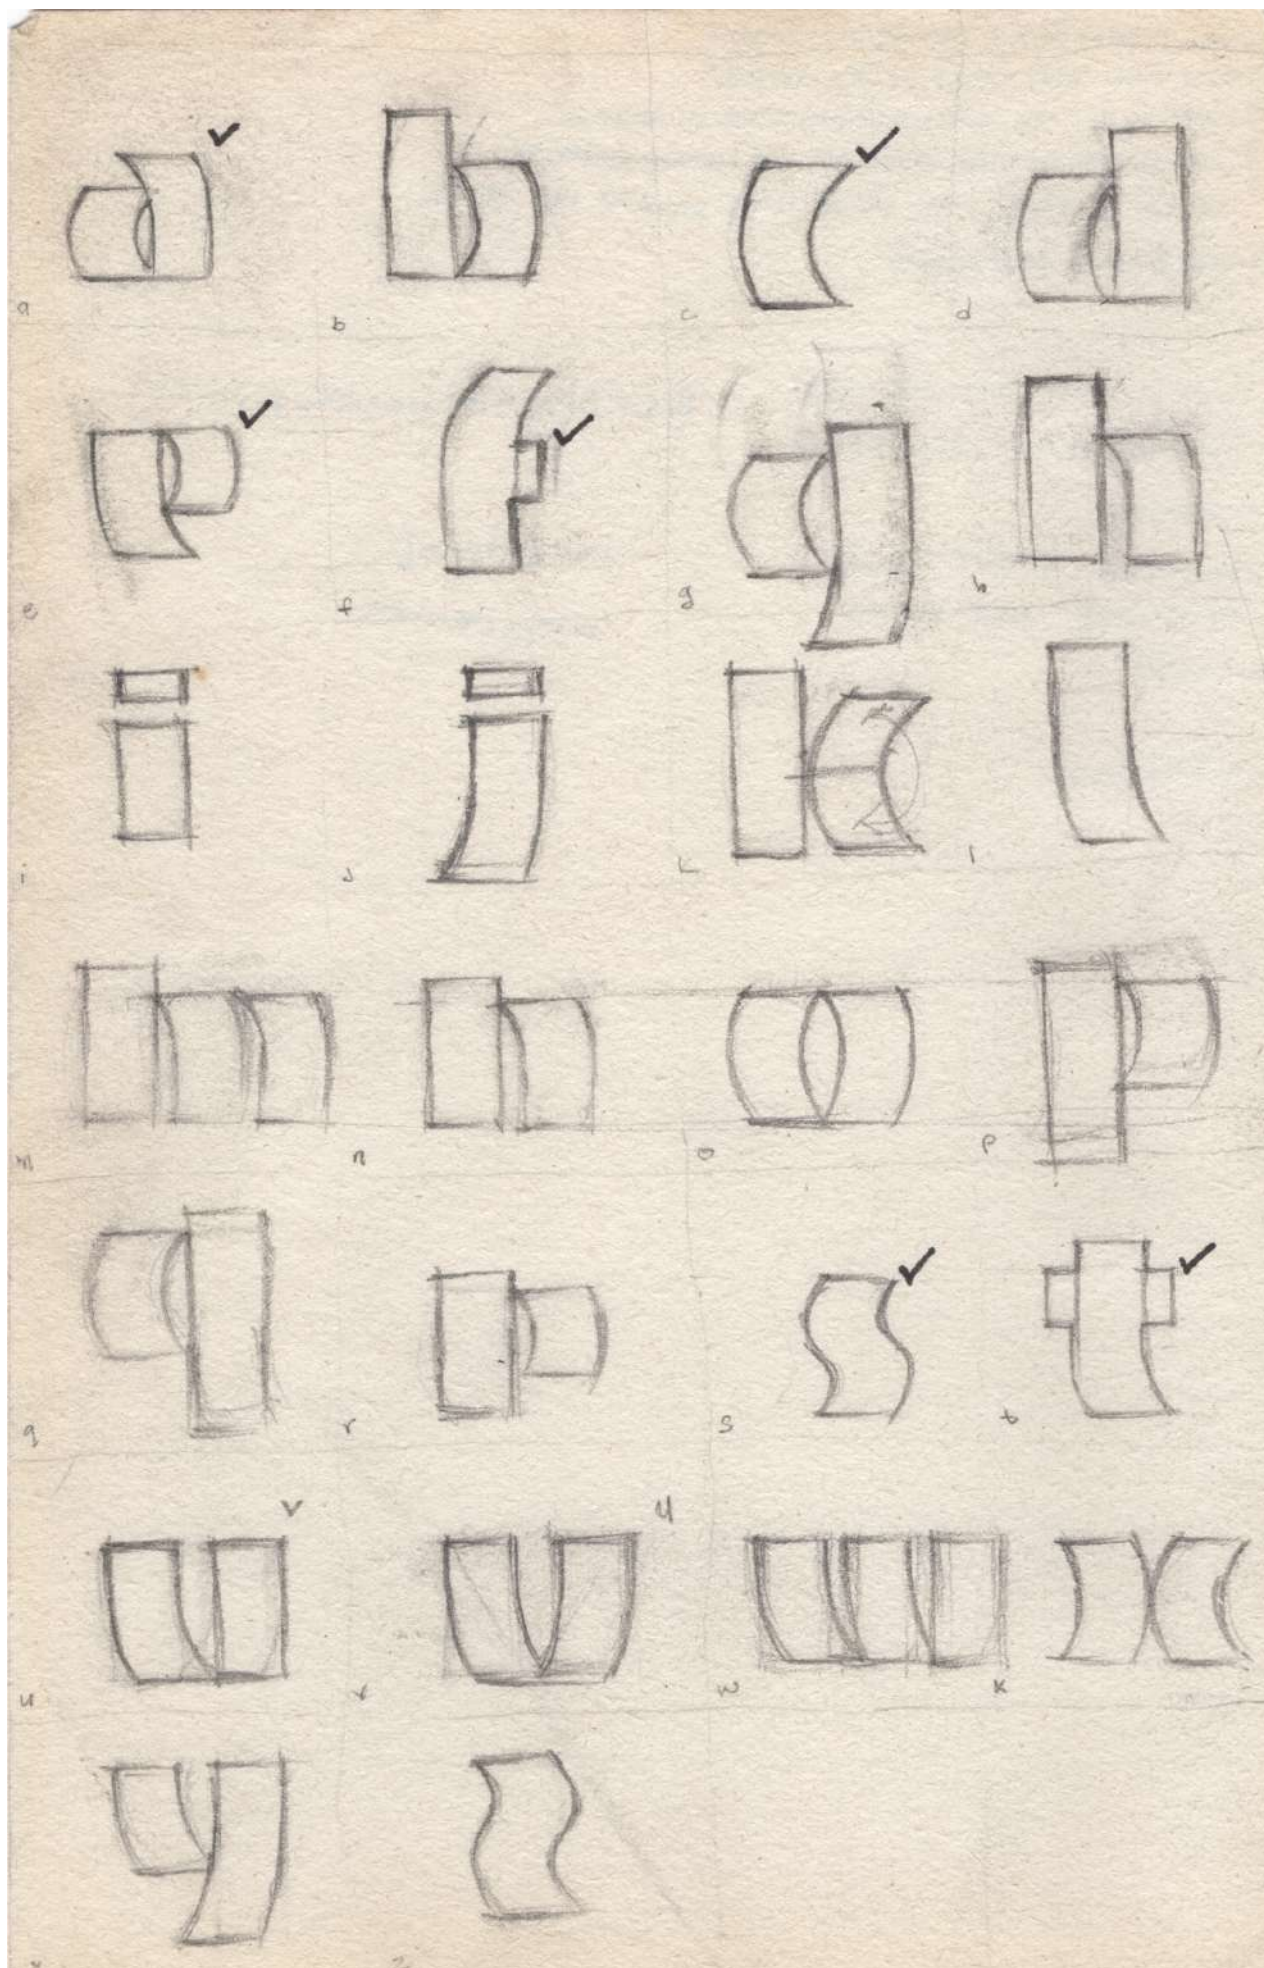 a b c d
e f g h
i j k l
m n o p
q r s t
v u
u v w x
y z